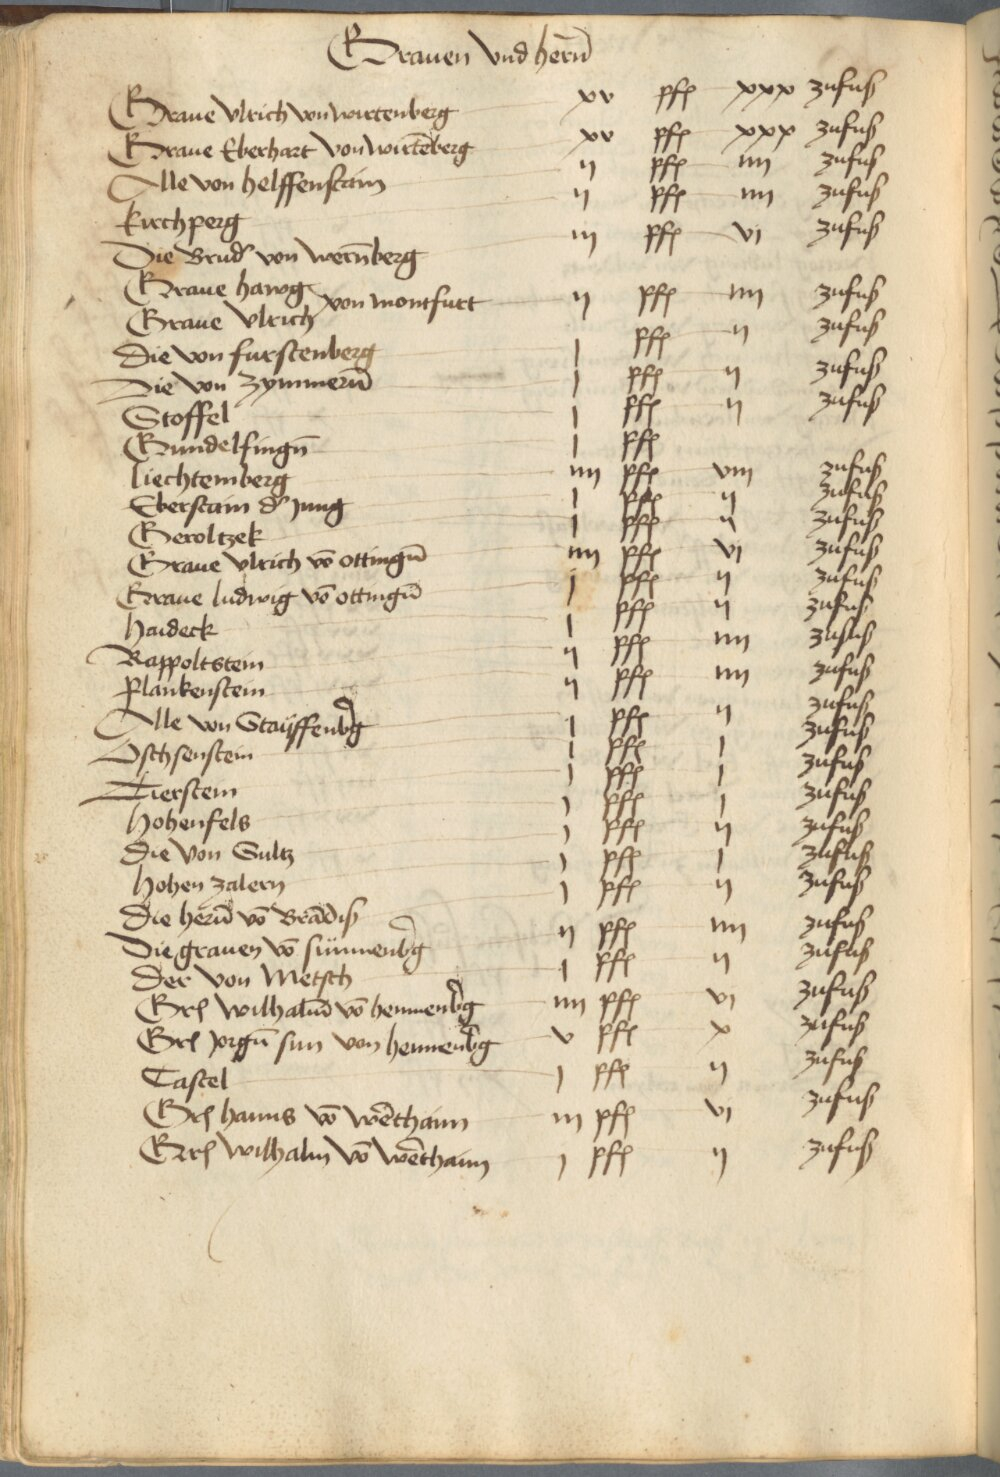 Grauen vnd herñ
Graue vlrich von wirtenberg xv pfe xxx zufuß
Graue Eberhart von wirtēberg xv pfe xxx zufuß
Alle von helffenstain ij pfe iiij zufuß
kirchperg ij pfe iiij zufuß
Die Brud von wernberg iij pfe vj zufuß
Graue hawg
Graue vlrich von montfurt ij pfe iiij zufuß
Die von furstenberg j pfe ij zufuß
Die von zymmerñ j pfe ij zufuß
Stoffel j pfe ij zufuß
Gundelfingñ j pfe
liechtemberg iiij pfe viij zufuß
Eberstain d Jung j pfe ij zufuß
Geroltzek j pfe ij zufuß
Graue vlrich vō ottingñ iiij pfe vj zufuß
Graue ludwig vō ottingñ j pfe ij zufuß
haideck j pfe ij zufuß
Rappoltstein ij pfe iiij zufuß
Plankenstein ij pfe iiij zufuß
Alle von Staÿffenbg j pfe ij zufuß
Ochsenstein j pfe j zufuß
Tierstein j pfe j zufuß
hohenfels j pfe j zufuß
die von Sultz j pfe ij zufuß
hohen zalern j pfe j zufuß
die herñ vō Brādis j pfe ij zufuß
Die grauen vō sünnenbg ij pfe iiij zufuß
der von Metsch j pfe ij zufuß
Grf wilhalm vō hennenbg iiij pfe vj zufuß
Grf Jorgñ sun von hennenbg v pfe x zufuß
Castel j pfe ij zufuß
Grf hanns vō wērthaim iij pfe vj zufuß
Grf wilhalm vō wērthaim j pfe ij zufuß